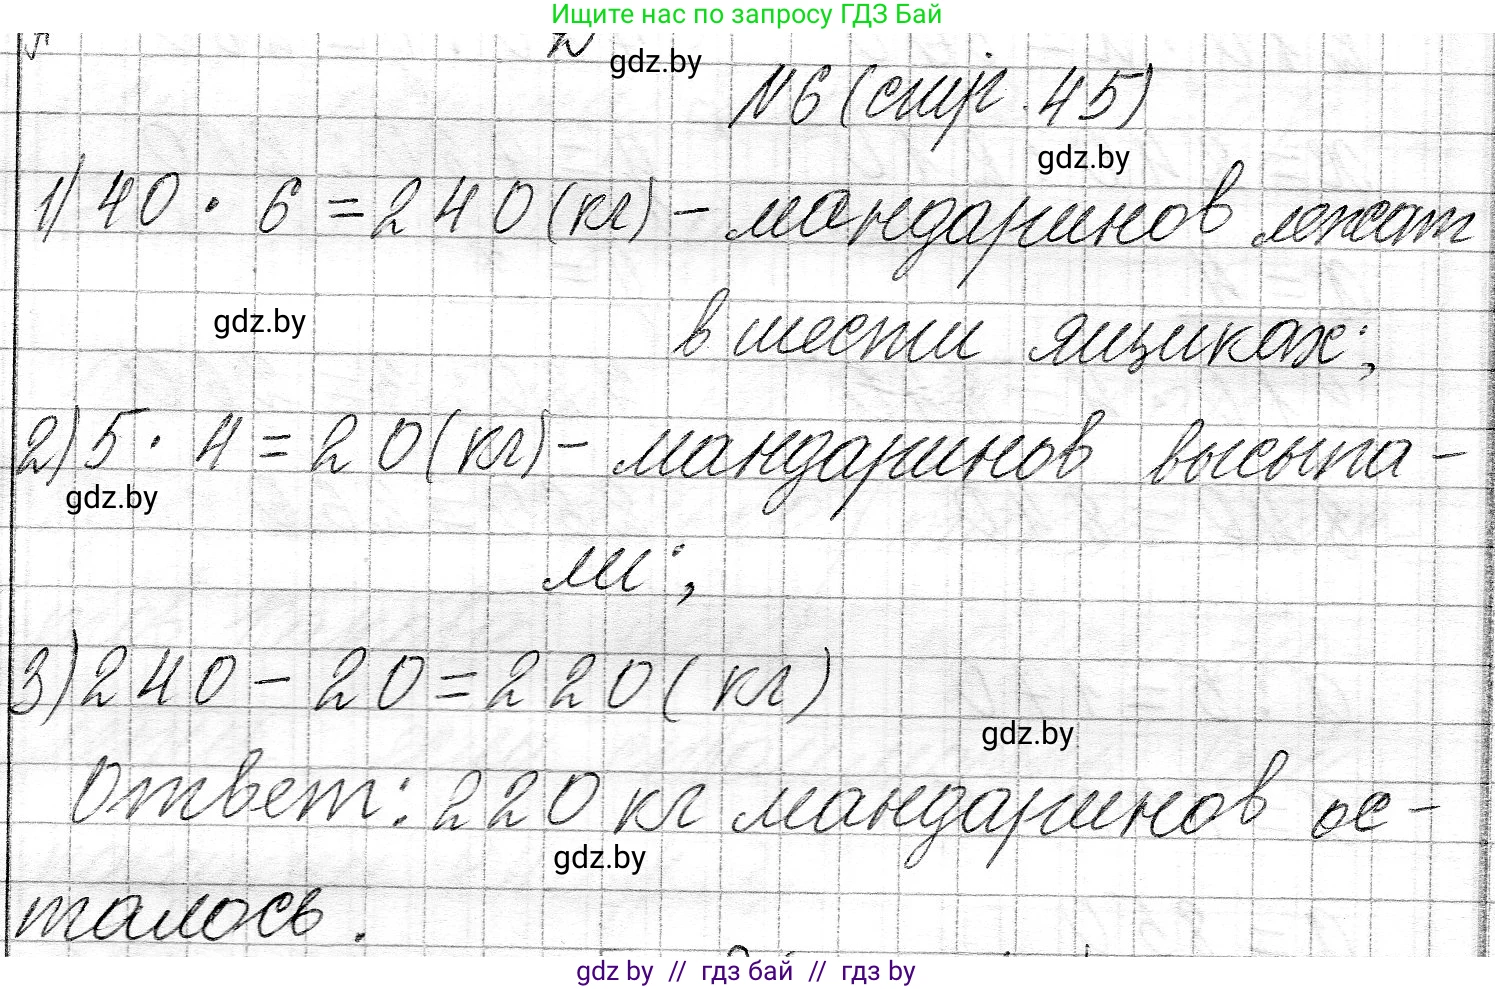 Ищите нас по запросу ГДЗ Бай
gdz.by
№6 (стр. 45)
gdz.by
1) 40 · 6 = 240 (кг) - мандаринов лежат
в шести ящиках;
gdz.by
2) 5 · 4 = 20 (кг) - мандаринов высыпа-
gdz.by
ли;
3) 240 - 20 = 220 (кг)
gdz.by
Ответ: 220 кг мандаринов ос-
gdz.by
талось.
gdz by // гдз бай // гдз by